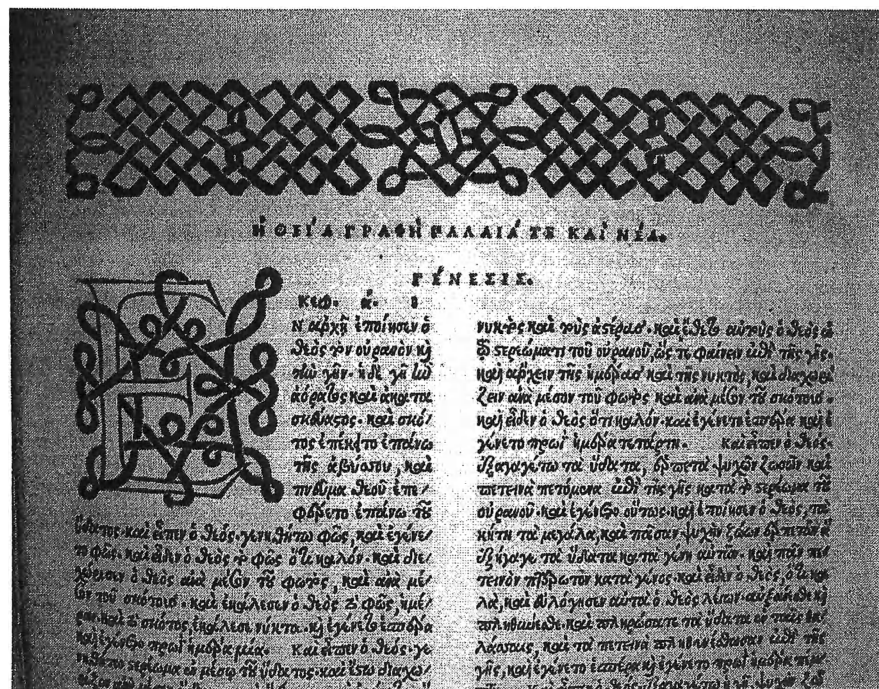 Η ΘΕΊΑ ΓΡΑΦΗ ΠΑΛΑΙΆ ΤΕ ΚΑῚ ΝΈΑ.
ΓΈΝΕΣΙΣ.
ΚΕΦ. ά.
ΕΝ ἀρχῇ ἐποίησεν ὁ
θεὸς τὸν οὐρανὸν κὴ
τὴν γῆν. ἡ δὲ γῆ ἦν
ἀόρατος καὶ ἀκατα
σκεύαστος. καὶ σκό/
τος ἐπέκειτο ἐπάνω
τῆς ἀβύσσου, καὶ
πνεῦμα θεοῦ ἐπε/
φέρετο ἐπάνω τοῦ
ὕδατος. καὶ εἶπεν ὁ θεός. γενηθήτω φῶς, καὶ ἐγένε/
το φῶς. καὶ εἶδεν ὁ θεὸς τὸ φῶς ὅτι καλόν. καὶ διε/
χώρισεν ὁ θεὸς ἀνὰ μέσον τοῦ φωτὸς, καὶ ἀνὰ μέ/
σον τοῦ σκότους. καὶ ἐκάλεσεν ὁ θεὸς τὸ φῶς ἡμέ/
ραν. καὶ τὸ σκότος ἐκάλεσε νύκτα. κὴ ἐγένετο ἑσπέρα
καὶ ἐγένετο πρωῒ ἡμέρα μία. Καὶ εἶπεν ὁ θεός. γε/
νηθήτω στερέωμα ἐν μέσῳ τοῦ ὕδατος. καὶ ἔστω διαχω/
νυκτὸς καὶ τοὺς ἀστέρας. καὶ ἔθετο αὐτοὺς ὁ θεὸς ἐν
τῷ στερεώματι τοῦ οὐρανοῦ, ὥς τε φαίνειν ἐπὶ τῆς γῆς.
καὶ ἄρχειν τῆς ἡμέρας καὶ τῆς νυκτὸς, καὶ διαχωρί
ζειν ἀνὰ μέσον τοῦ φωτὸς καὶ ἀνὰ μέσον τοῦ σκότους.
καὶ εἶδεν ὁ θεὸς ὅτι καλόν. καὶ ἐγένετο ἑσπέρα καὶ ἐ
γένετο πρωῒ ἡμέρα τετάρτη. Καὶ εἶπεν ὁ θεός.
ἐξαγαγέτω τὰ ὕδατα, ἑρπετὰ ψυχῶν ζωσῶν καὶ
πετεινὰ πετόμενα ἐπὶ τῆς γῆς κατὰ τὸ στερέωμα τοῦ
οὐρανοῦ. καὶ ἐγένετο οὕτως. καὶ ἐποίησεν ὁ θεὸς, τὰ
κήτη τὰ μεγάλα, καὶ πᾶσαν ψυχὴν ζώων ἑρπετῶν ἃ
ἐξήγαγε τὰ ὕδατα κατὰ γένη αὐτῶν. καὶ πᾶν πε/
τεινὸν πτερωτὸν κατὰ γένος. καὶ εἶδεν ὁ θεὸς, ὅτι κα
λὰ, καὶ εὐλόγησεν αὐτὰ ὁ θεὸς λέγων. αὐξάνεσθε κὴ
πληθύνεσθε. καὶ πληρώσατε τὰ ὕδατα ἐν ταῖς θα/
λάσσαις, καὶ τὰ πετεινὰ πληθυνέσθωσαν ἐπὶ τῆς
γῆς, καὶ ἐγένετο ἑσπέρα κὴ ἐγένετο πρωῒ ἡμέρα πέμ/